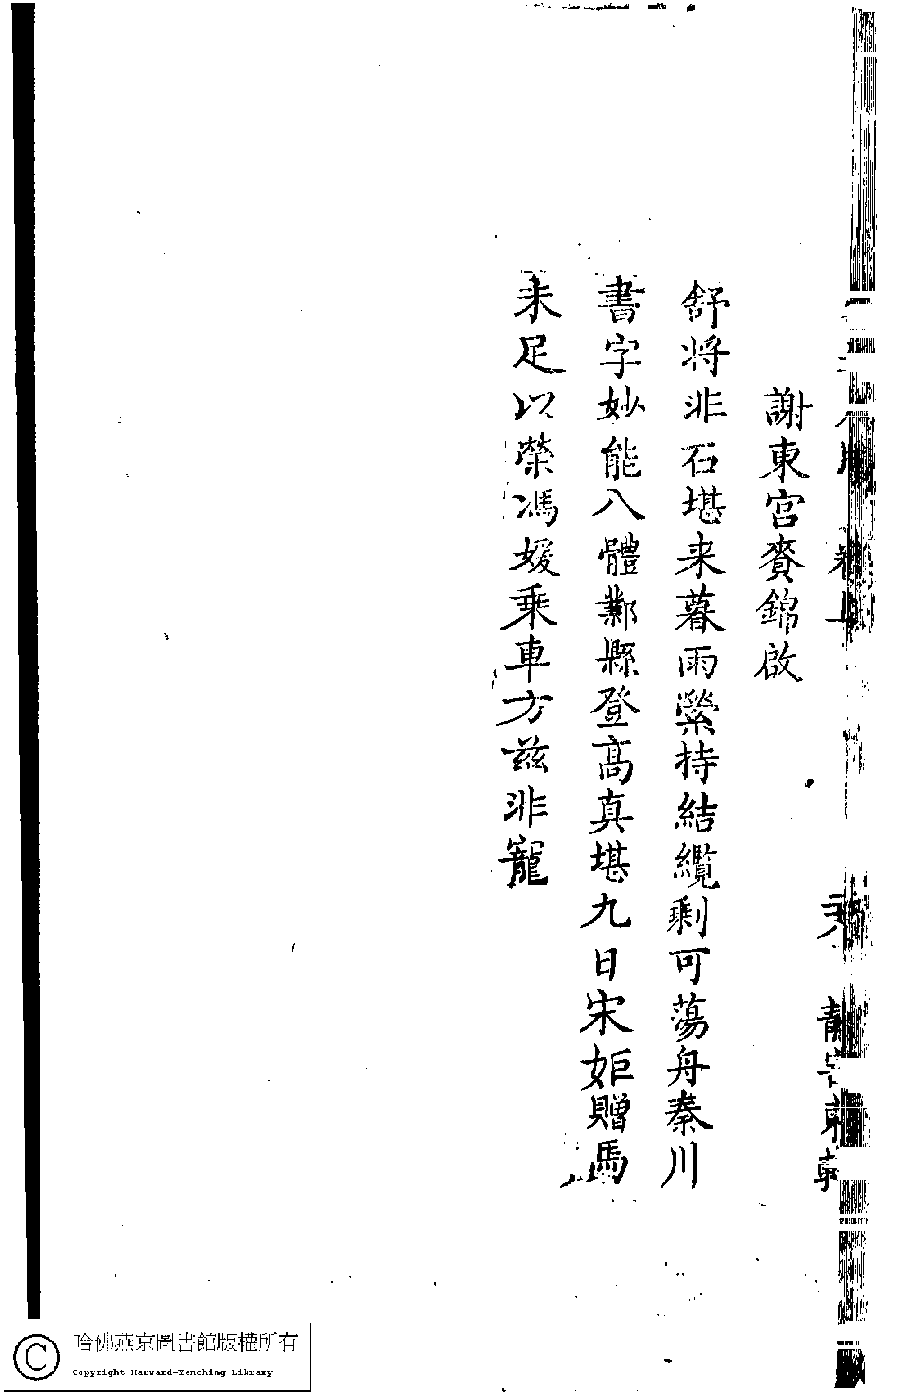 謝東宮賚錦啟
舒将非石堪来暮雨縈持結纜剩可蕩舟秦川
書字妙能八體鄴縣登髙真堪九日宋姬贈馬
未足以榮馮媛乗車方兹非寵
哈佛燕京圖書館版權所有
Copyright Harvard-Yenching Library